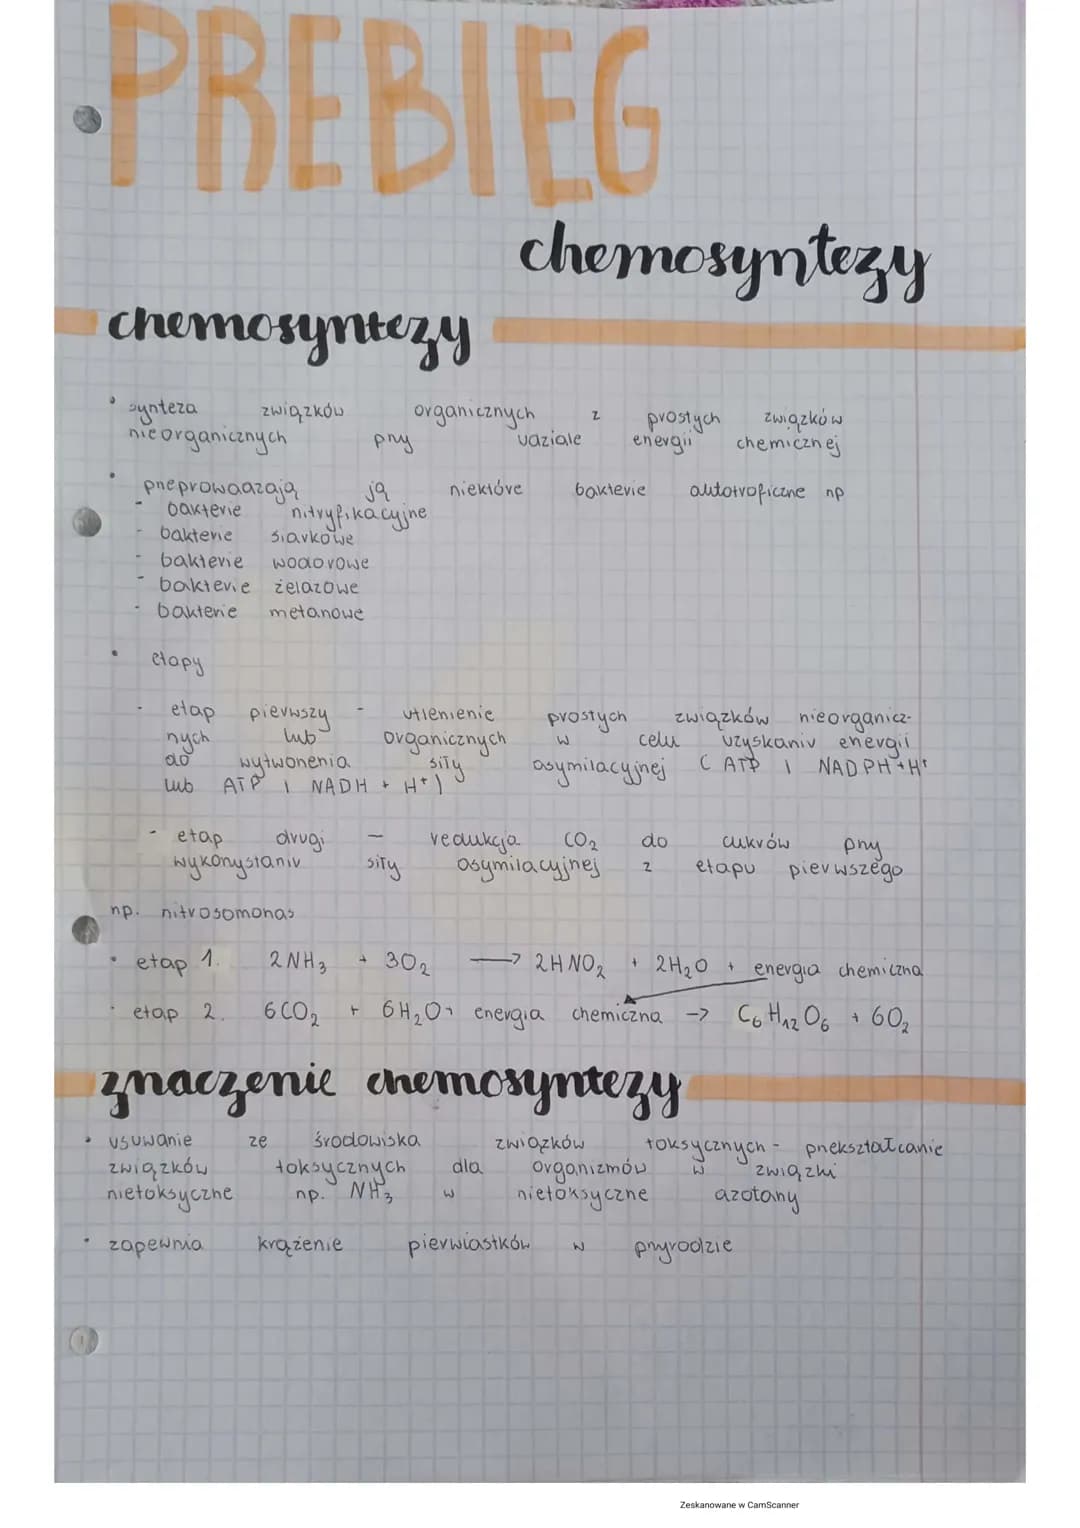 PREBIEG
chemosyntezy
chemosyntezy
• synteza związków organicznych z prostych związków
nieorganicznych przy udziale energii chemicznej
• przeprowadzają ją niektóre bakterie autotroficzne np
- bakterie nitryfikacyjne
- bakterie siarkowe
- bakterie wodorowe
- bakterie żelazowe
- bakterie metanowe
• etapy
- etap pierwszy - utlenienie prostych związków nieorganicz-
nych lub organicznych w celu uzyskaniu energii
do wytworzenia siły asymilacyjnej (ATP i NADPH + H⁺
lub ATP i NADH + H⁺)
- etap drugi - redukcja CO₂ do cukrów przy
wykorzystaniu siły asymilacyjnej z etapu pierwszego
np. nitrosomonas
• etap 1. 2NH₃ + 3O₂ → 2HNO₂ + 2H₂O + energia chemiczna
• etap 2. 6CO₂ + 6H₂O + energia chemiczna → C₆H₁₂O₆ + 6O₂
znaczenie chemosyntezy
• usuwanie ze środowiska związków toksycznych - przekształcanie
związków toksycznych dla organizmów w związki
nietoksyczne np. NH₃ w nietoksyczne azotany
• zapewnia krążenie pierwiastków w przyrodzie
Zeskanowane w CamScanner